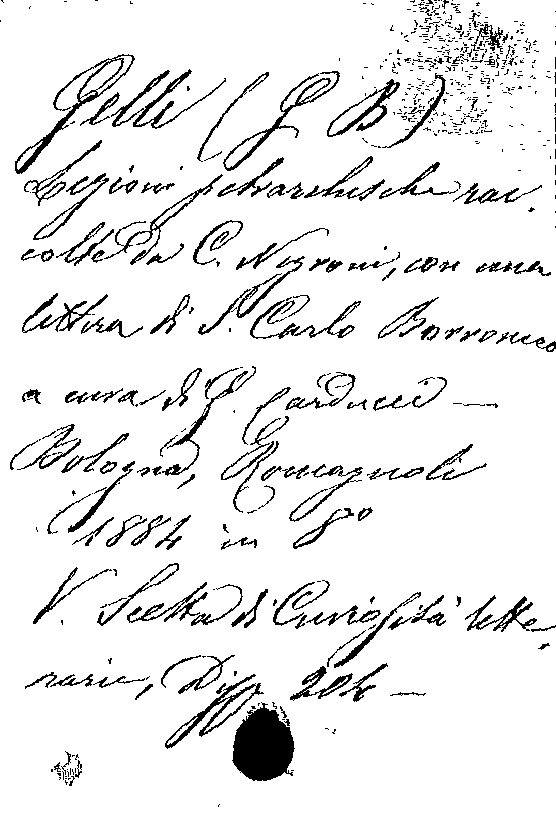 Gelli (G B)
Lezioni petrarchesche rac-
colte da C. Negroni, con una
lettera di S. Carlo Borromeo
a cura di G. Carducci —
Bologna, Romagnoli
1884 in 8º
V. Scelta di Curiosità lette-
rarie, Disp 204 —